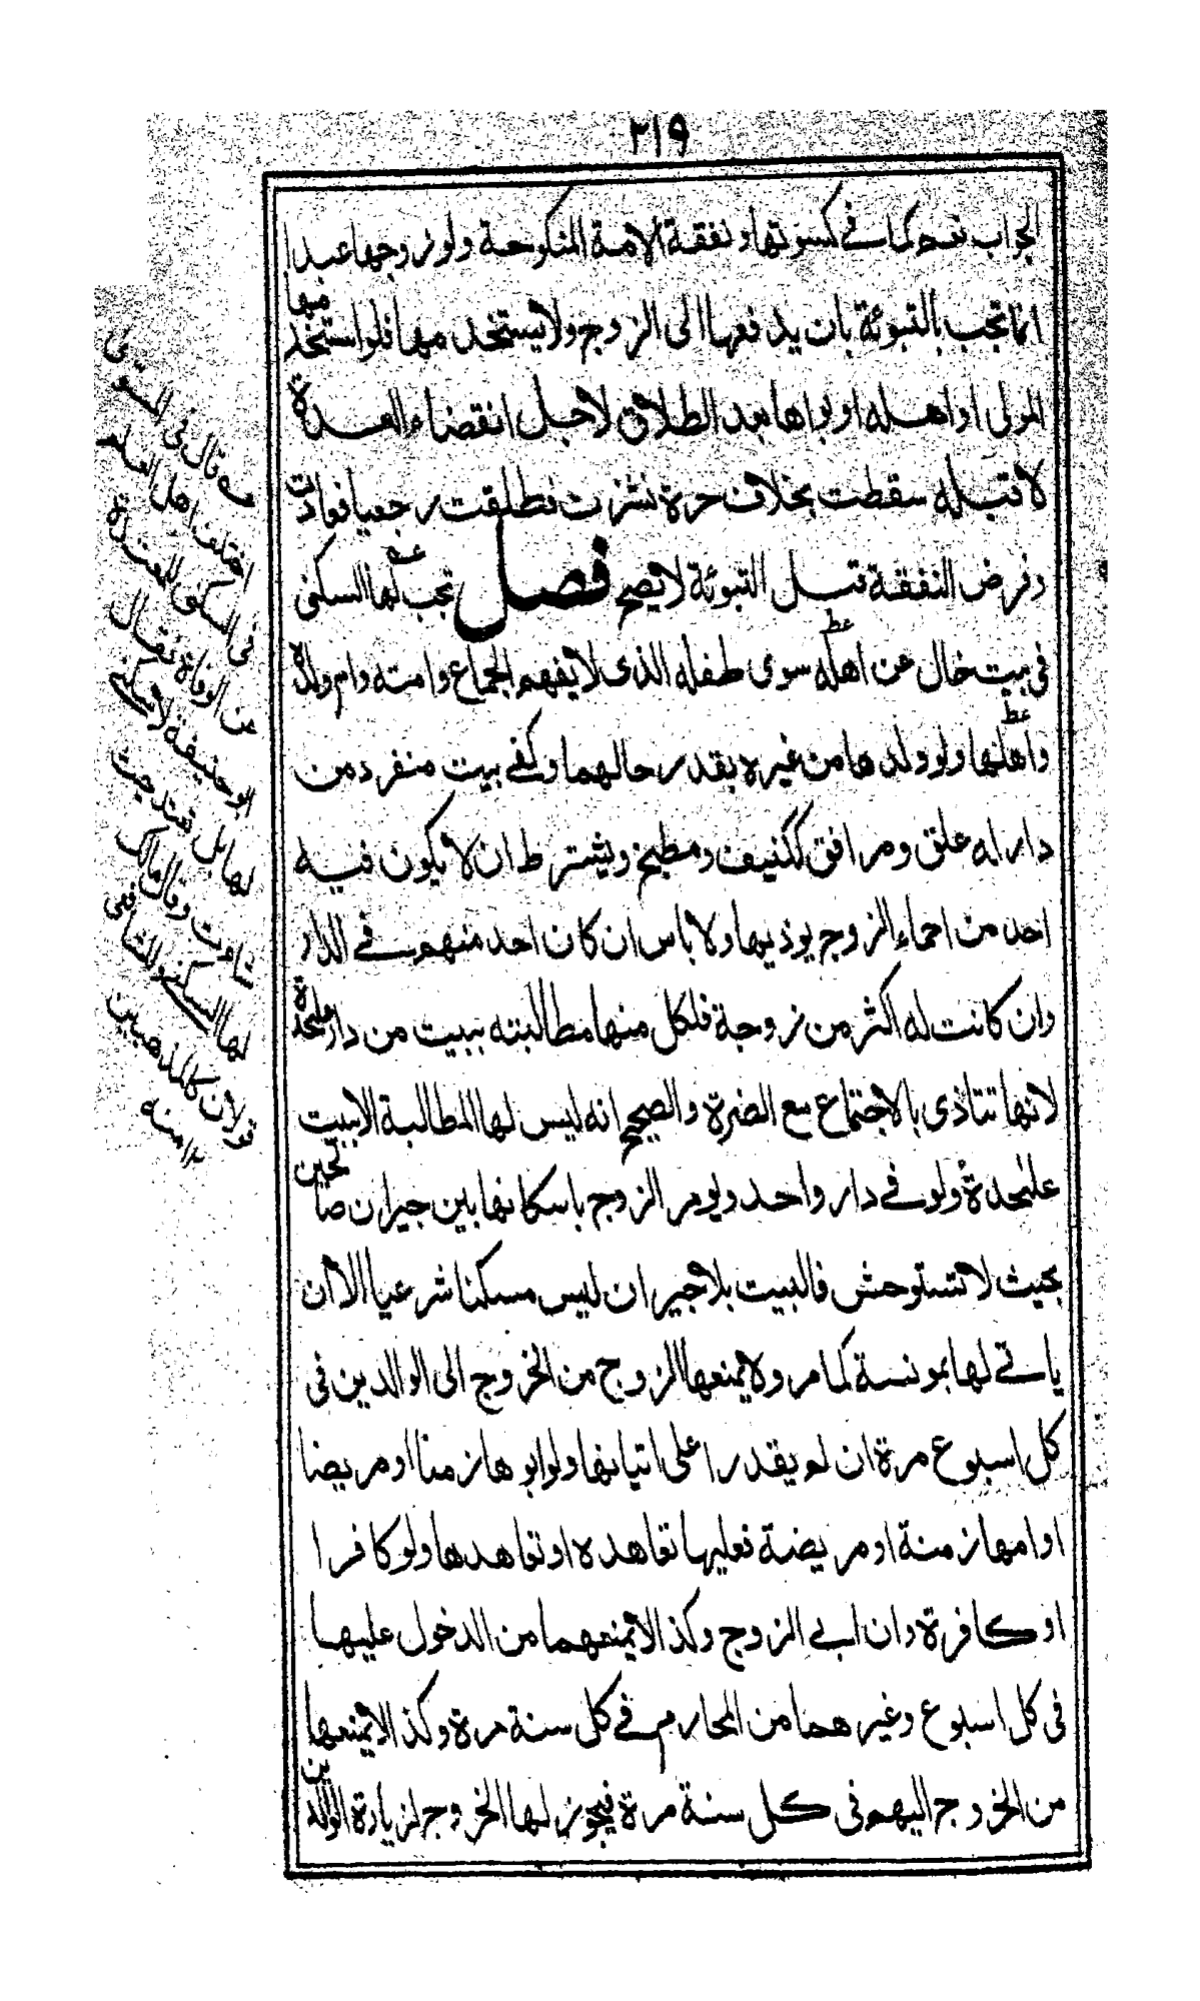 ٢١٩
الجواب نعم كما في كسوتها ونفقة الامة المنكوحة ولو زوجها عبدا
انما تجب بالتبوئة بان يدفعها اليه الزوج ولا يستخدمها فلو استخدمها
المولى او اهله او بواها بعد الطلاق لاجل انقضاء العدة
لا قبله سقطت بخلاف حرة نشزت فطلقت رجعيا فعادت
وفرض النفقة قبل التبوئة لا يصح فصل تجب لها السكنى
في بيت خال عن اهله سوى طفله الذى لا يفهم الجماع وامته وام ولده
واهلها ولو ولدها من غيره بقدر حالهما وكفى بيت منفرد من
دار له غلق ومرافق ككنيف ومطبخ ويشترط ان لا يكون فيه
احد من احماء الزوج يوذيها ولا باس ان كان احد منهم في الدار
وان كانت له اكثر من زوجة فلكل منها مطالبته ببيت من دار عليحدة
لانها تتاذى بالاجتماع مع الضرة والصحيح انه ليس لها المطالبة الا ببيت
عليحدة ولو في دار واحد ويومر الزوج باسكانها بين جيران صالحين
بحيث لا تستوحش فالبيت بلا جيران ليس مسكنا شرعيا الا ان
ياتے لها بمونسة كما مر ولا يمنعها الزوج من الخروج الى الوالدين فى
كل اسبوع مرة ان لم يقدرا على اتيانها ولو ابوها زمنا او مريضا
او امها زمنة او مريضة فعليها تعاهده او تعاهدها ولو كافرا
او كافرة وان ابى الزوج وكذا لا يمنعهما من الدخول عليها
فى كل اسبوع وغيرهما من المحارم في كل سنة مرة وكذا لا يمنعها
من الخروج اليهم فى كل سنة مرة فيجوز لها الخروج لزيارة الوالدين
عه قال فى
اختلف اهل العلم
فى السكنى للمعتدة
عن الوفاة فقال
ابو حنيفة لا سكنے
لها بل تعتد حيث
شاءت وقال مالك
لها السكنى وللشافعى
قولان كالمذهبين
منه